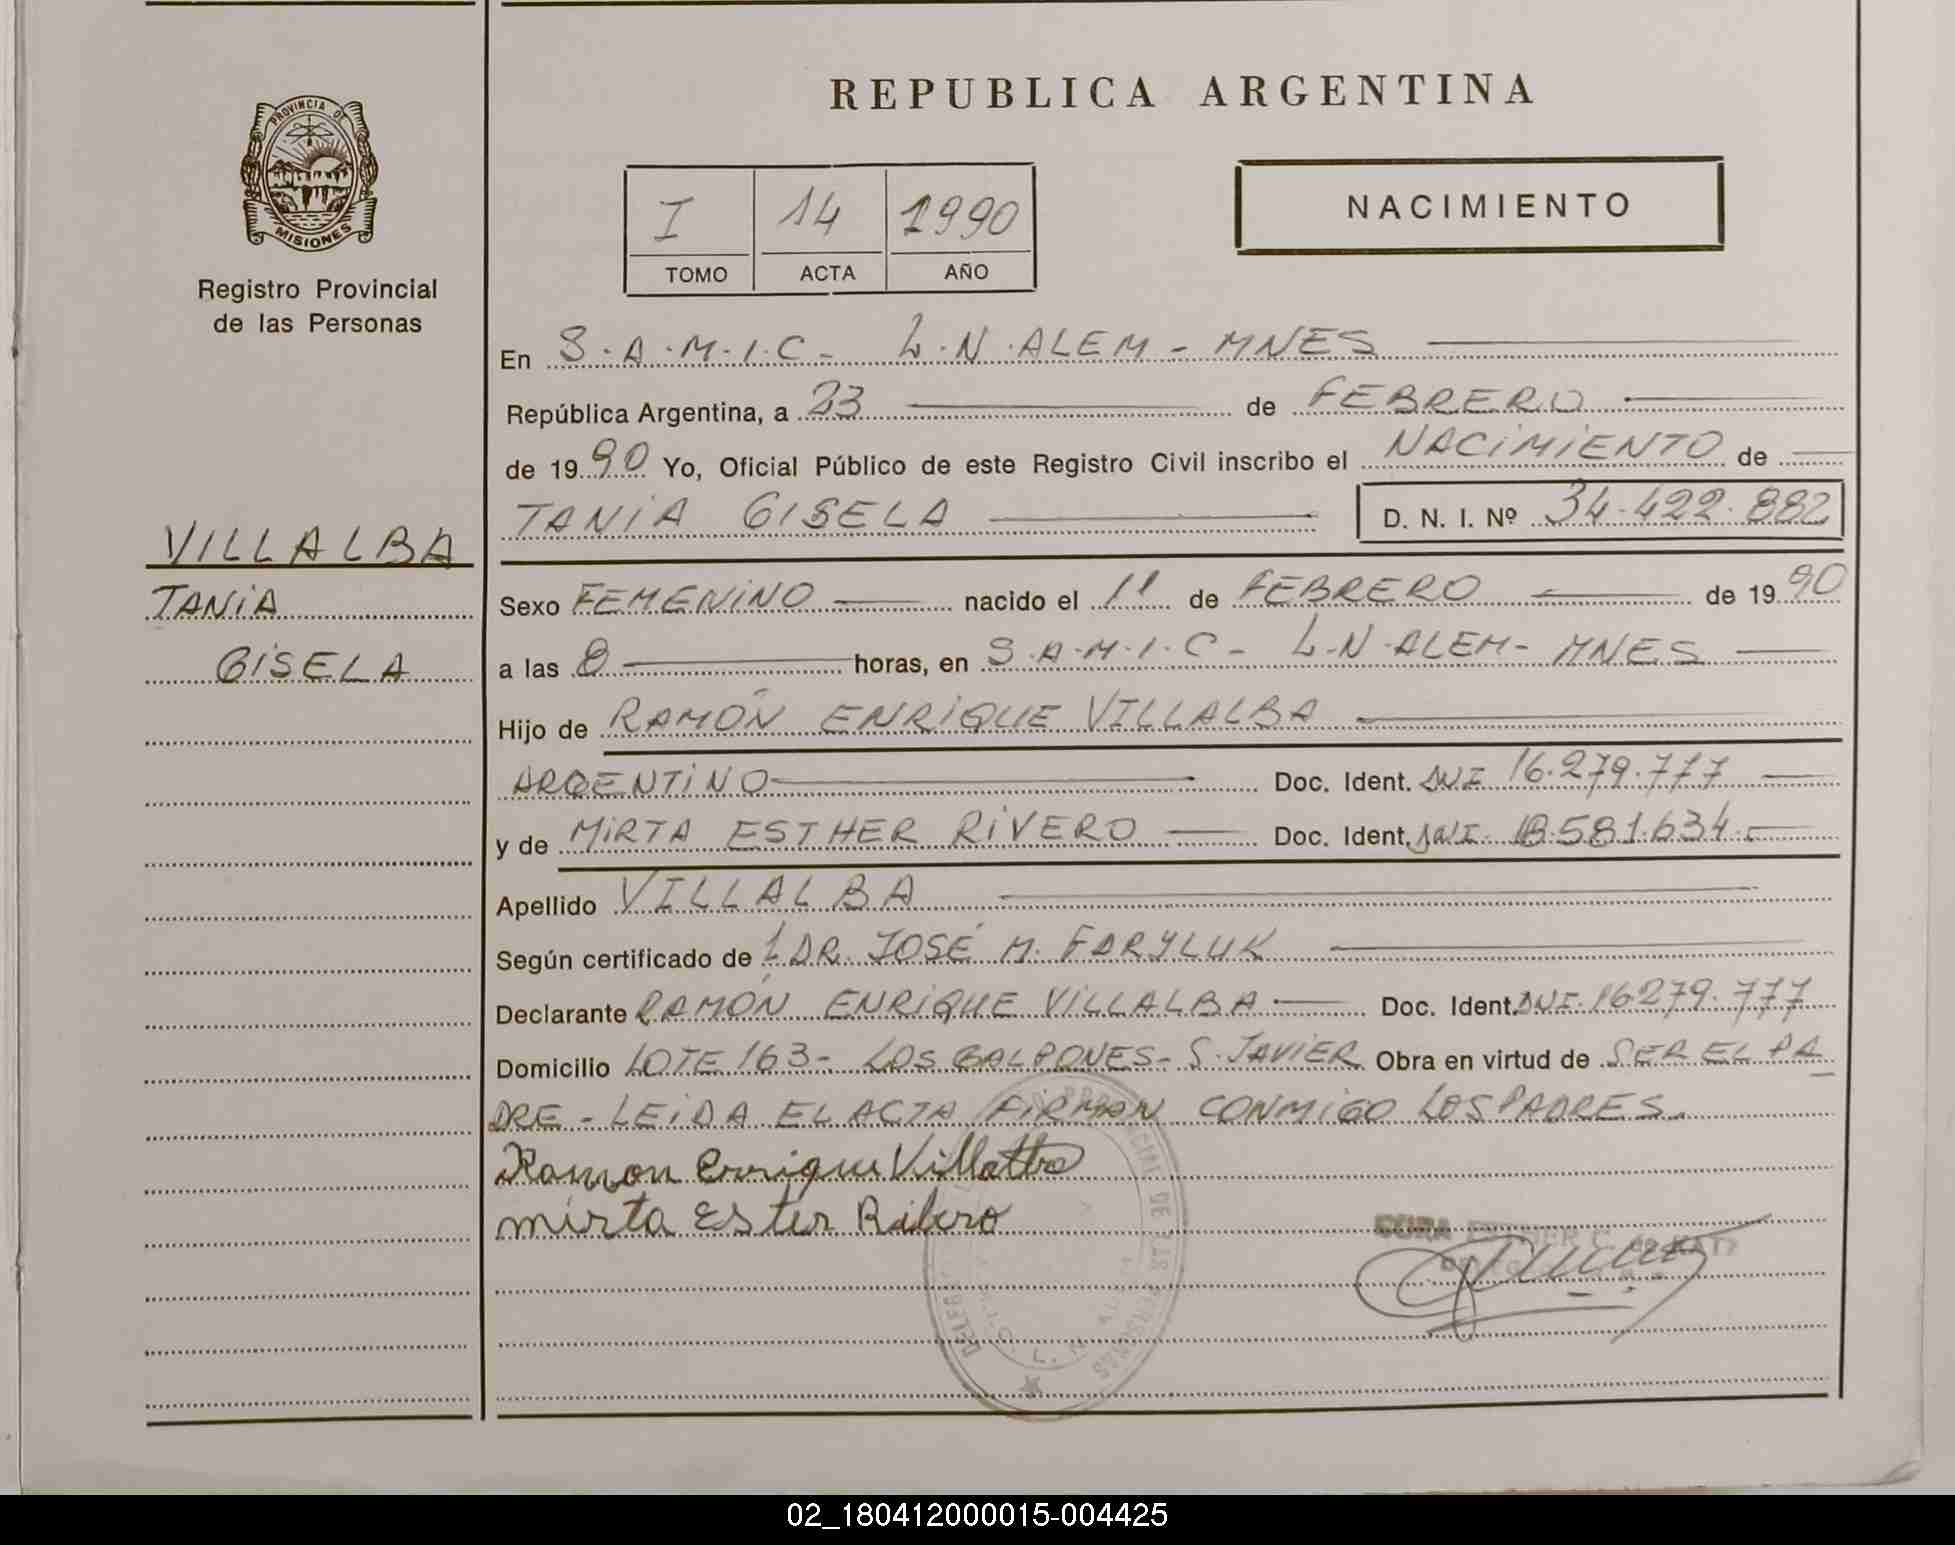 REPUBLICA ARGENTINA
PROVINCIA DE
MISIONES
Registro Provincial
de las Personas
I 14 1990
TOMO ACTA AÑO
NACIMIENTO
En S.A.M.I.C - L.N.ALEM - MNES
República Argentina, a 23 de FEBRERO
de 1990 Yo, Oficial Público de este Registro Civil inscribo el NACIMIENTO de
TANIA GISELA D. N. I. Nº 34.422.882
VILLALBA
TANIA
GISELA
Sexo FEMENINO nacido el 11 de FEBRERO de 1990
a las 8 horas, en S.A.M.I.C - L.N.ALEM - MNES
Hijo de RAMÓN ENRIQUE VILLALBA
ARGENTINO Doc. Ident. DNI 16.279.777
y de MIRTA ESTHER RIVERO Doc. Ident. DNI 18.581.634
Apellido VILLALBA
Según certificado de DR. JOSÉ M. FARYLUK
Declarante RAMÓN ENRIQUE VILLALBA Doc. Ident. DNI 16279.777
Domicilio LOTE 163 - LOS GALPONES - S. JAVIER Obra en virtud de SER EL PA
DRE - LEIDA EL ACTA FIRMAN CONMIGO LOS PADRES.
Ramon Enrique Villalba
mirta Ester Ribero
ESTHER C. de
02_180412000015-004425